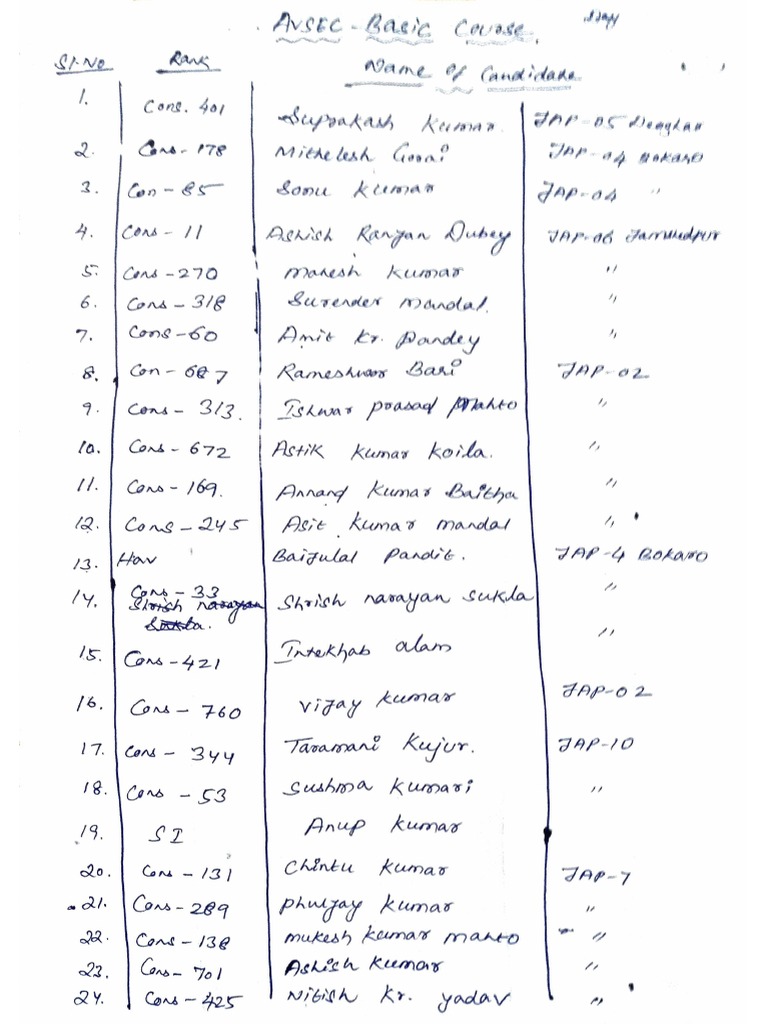 AVSEC-Basic Course
Sl.No Rank Name of Candidate
1. Cons. 401 Suprakash Kumar JAP-05
2. Cons-178 Mithelesh Gorai JAP-04 Bokaro
3. Con-85 Sonu Kumar JAP-04 "
4. Cons-11 Ashish Ranjan Dubey JAP-06
5. Cons-270 Mahesh Kumar "
6. Cons-318 Surender Mandal. "
7. Cons-60 Amit Kr. Pandey "
8. Con-687 Rameshwar Bari JAP-02
9. Cons-313. Ishwar Prasad Mahto "
10. Cons-672 Astik Kumar Koila. "
11. Cons-169. Annand Kumar Baitha "
12. Cons-245 Asit Kumar Mandal "
13. Hav Baijulal Pandit. JAP-4 Bokaro
14. Cons-33 Shrish narayan Sukla "
Shrish narayan
Sukla.
15. Cons-421 Intekhab alam "
16. Cons-760 Vijay Kumar JAP-02
17. Cons-344 Taramani Kujur. JAP-10
18. Cons-53 Sushma Kumari "
19. SI Anup Kumar
20. Cons-131 Chintu Kumar JAP-7
21. Cons-289 Phuljay Kumar "
22. Cons-138 Mukesh Kumar Mahto "
23. Cons-701 Ashish Kumar "
24. Cons-425 Nitish Kr. Yadav "